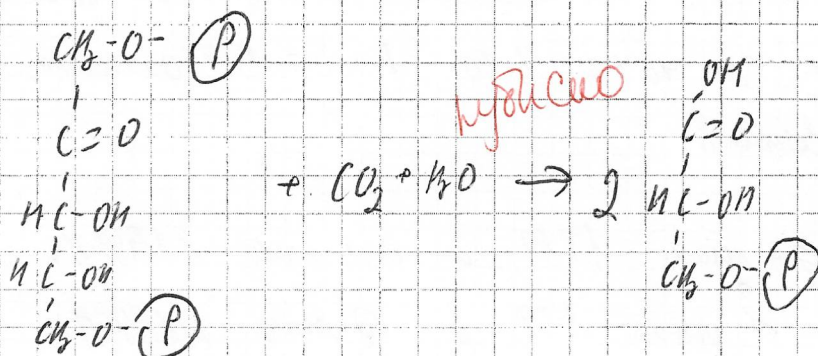 CH₂-O- P
C=O
HC-OH
HC-OH
CH₂-O- P
+ CO₂ + H₂O → 2
рубиско
OH
C=O
HC-OH
CH₂-O- P